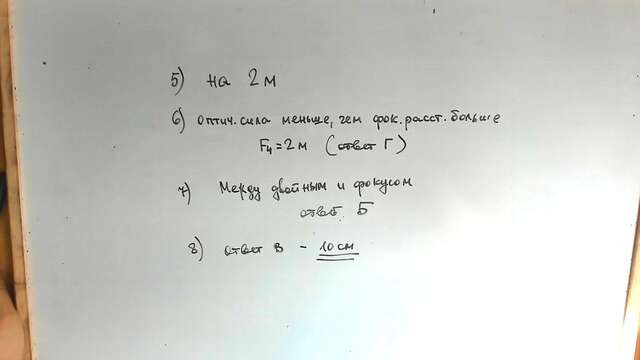 5) на 2 м
6) оптич. сила меньше, чем фок. расст. больше
F₄ = 2 м (ответ Г)
7) Между двойным и фокусом
ответ Б
8) ответ в - 10 см